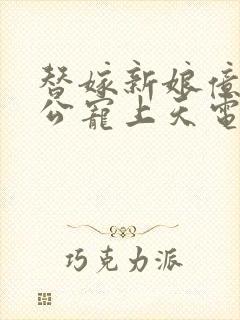 替嫁新娘億
公寵上天電
巧克力派